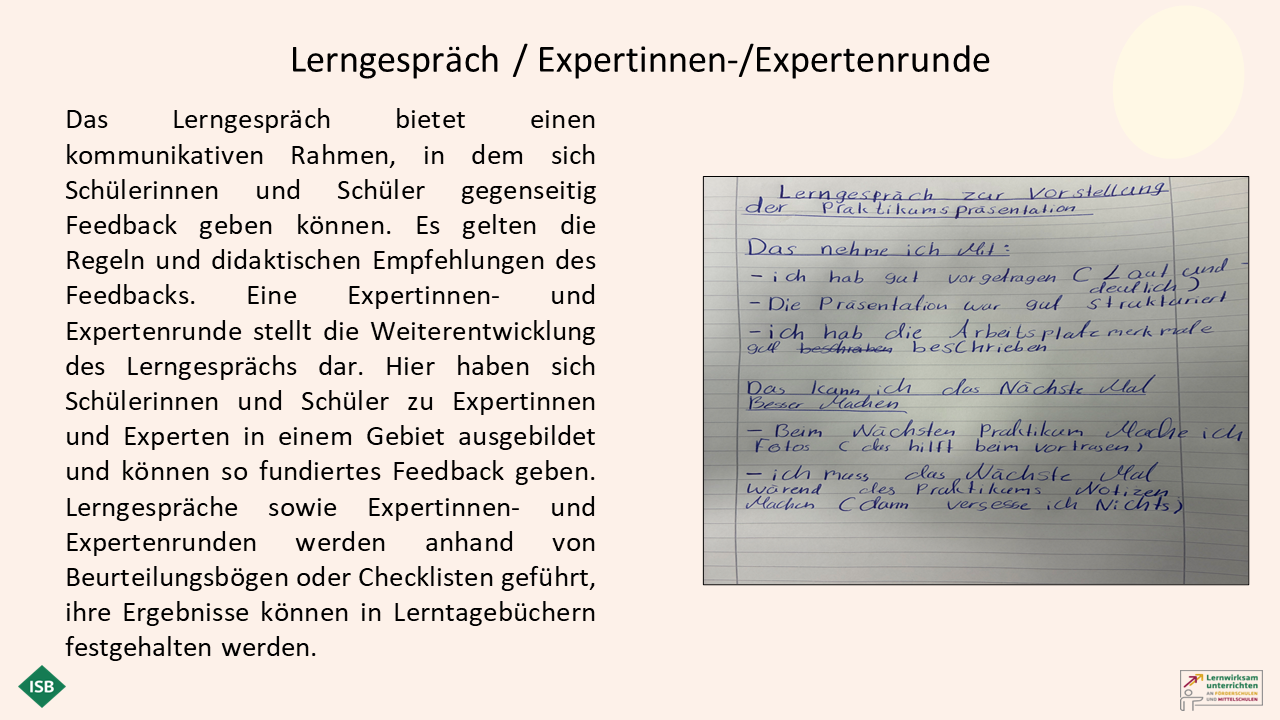 Lerngespräch / Expertinnen-/Expertenrunde
Das Lerngespräch bietet einen
kommunikativen Rahmen, in dem sich
Schülerinnen und Schüler gegenseitig
Feedback geben können. Es gelten die
Regeln und didaktischen Empfehlungen des
Feedbacks. Eine Expertinnen- und
Expertenrunde stellt die Weiterentwicklung
des Lerngesprächs dar. Hier haben sich
Schülerinnen und Schüler zu Expertinnen
und Experten in einem Gebiet ausgebildet
und können so fundiertes Feedback geben.
Lerngespräche sowie Expertinnen- und
Expertenrunden werden anhand von
Beurteilungsbögen oder Checklisten geführt,
ihre Ergebnisse können in Lerntagebüchern
festgehalten werden.
Lerngespräch zur Vorstellung
der Praktikumspräsentation
Das nehme ich Mit:
- ich hab gut vorgetragen ( Laut und
deutlich )
- Die Präsentation war gut strukturiert
- ich hab die Arbeitsplatzmerkmale
gut beschrieben
Das kann ich das Nächste Mal
Besser Machen
- Beim Nächsten Praktikum Mache ich
Fotos ( das hilft beim vortragen )
- ich muss das Nächste Mal
wärend des Praktikums Notizen
Machen ( dann vergesse ich Nichts )
ISB
Lernwirksam
unterrichten
AN FÖRDERSCHULEN
UND MITTELSCHULEN